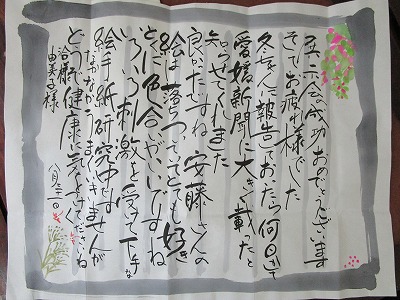 五人展の成功おめでとうございます
そしてお疲れ様でした
冬さんに報告しておたら何日かして
愛媛新聞に大きく載ったと
知らせてくれました
良かったですね 安藤さんの
絵は落ちついてとても好き
とくに色合いがいいですね
いろいろ刺激を受けて下手な
絵手紙研究中です
なかなかうまくいきませんが
どうぞ健康に気をつけてくださいね
治様
由美子様
八月三十一日